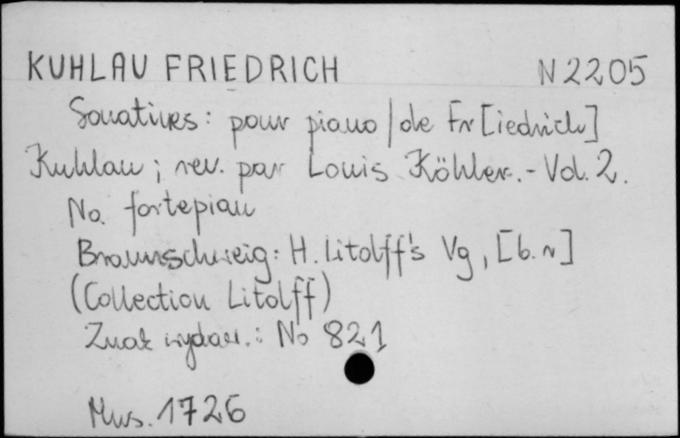 KUHLAU FRIEDRICH N 2205
Sonatines : pour piano / de Fr [iedrich]
Kuhlau ; rev. par Louis Köhler. - Vol. 2.
Na fortepian
Braunschweig : H. Litolff's Vg, [b. r]
(Collection Litolff)
Znak wydaw. : No 821
Mus. 1726